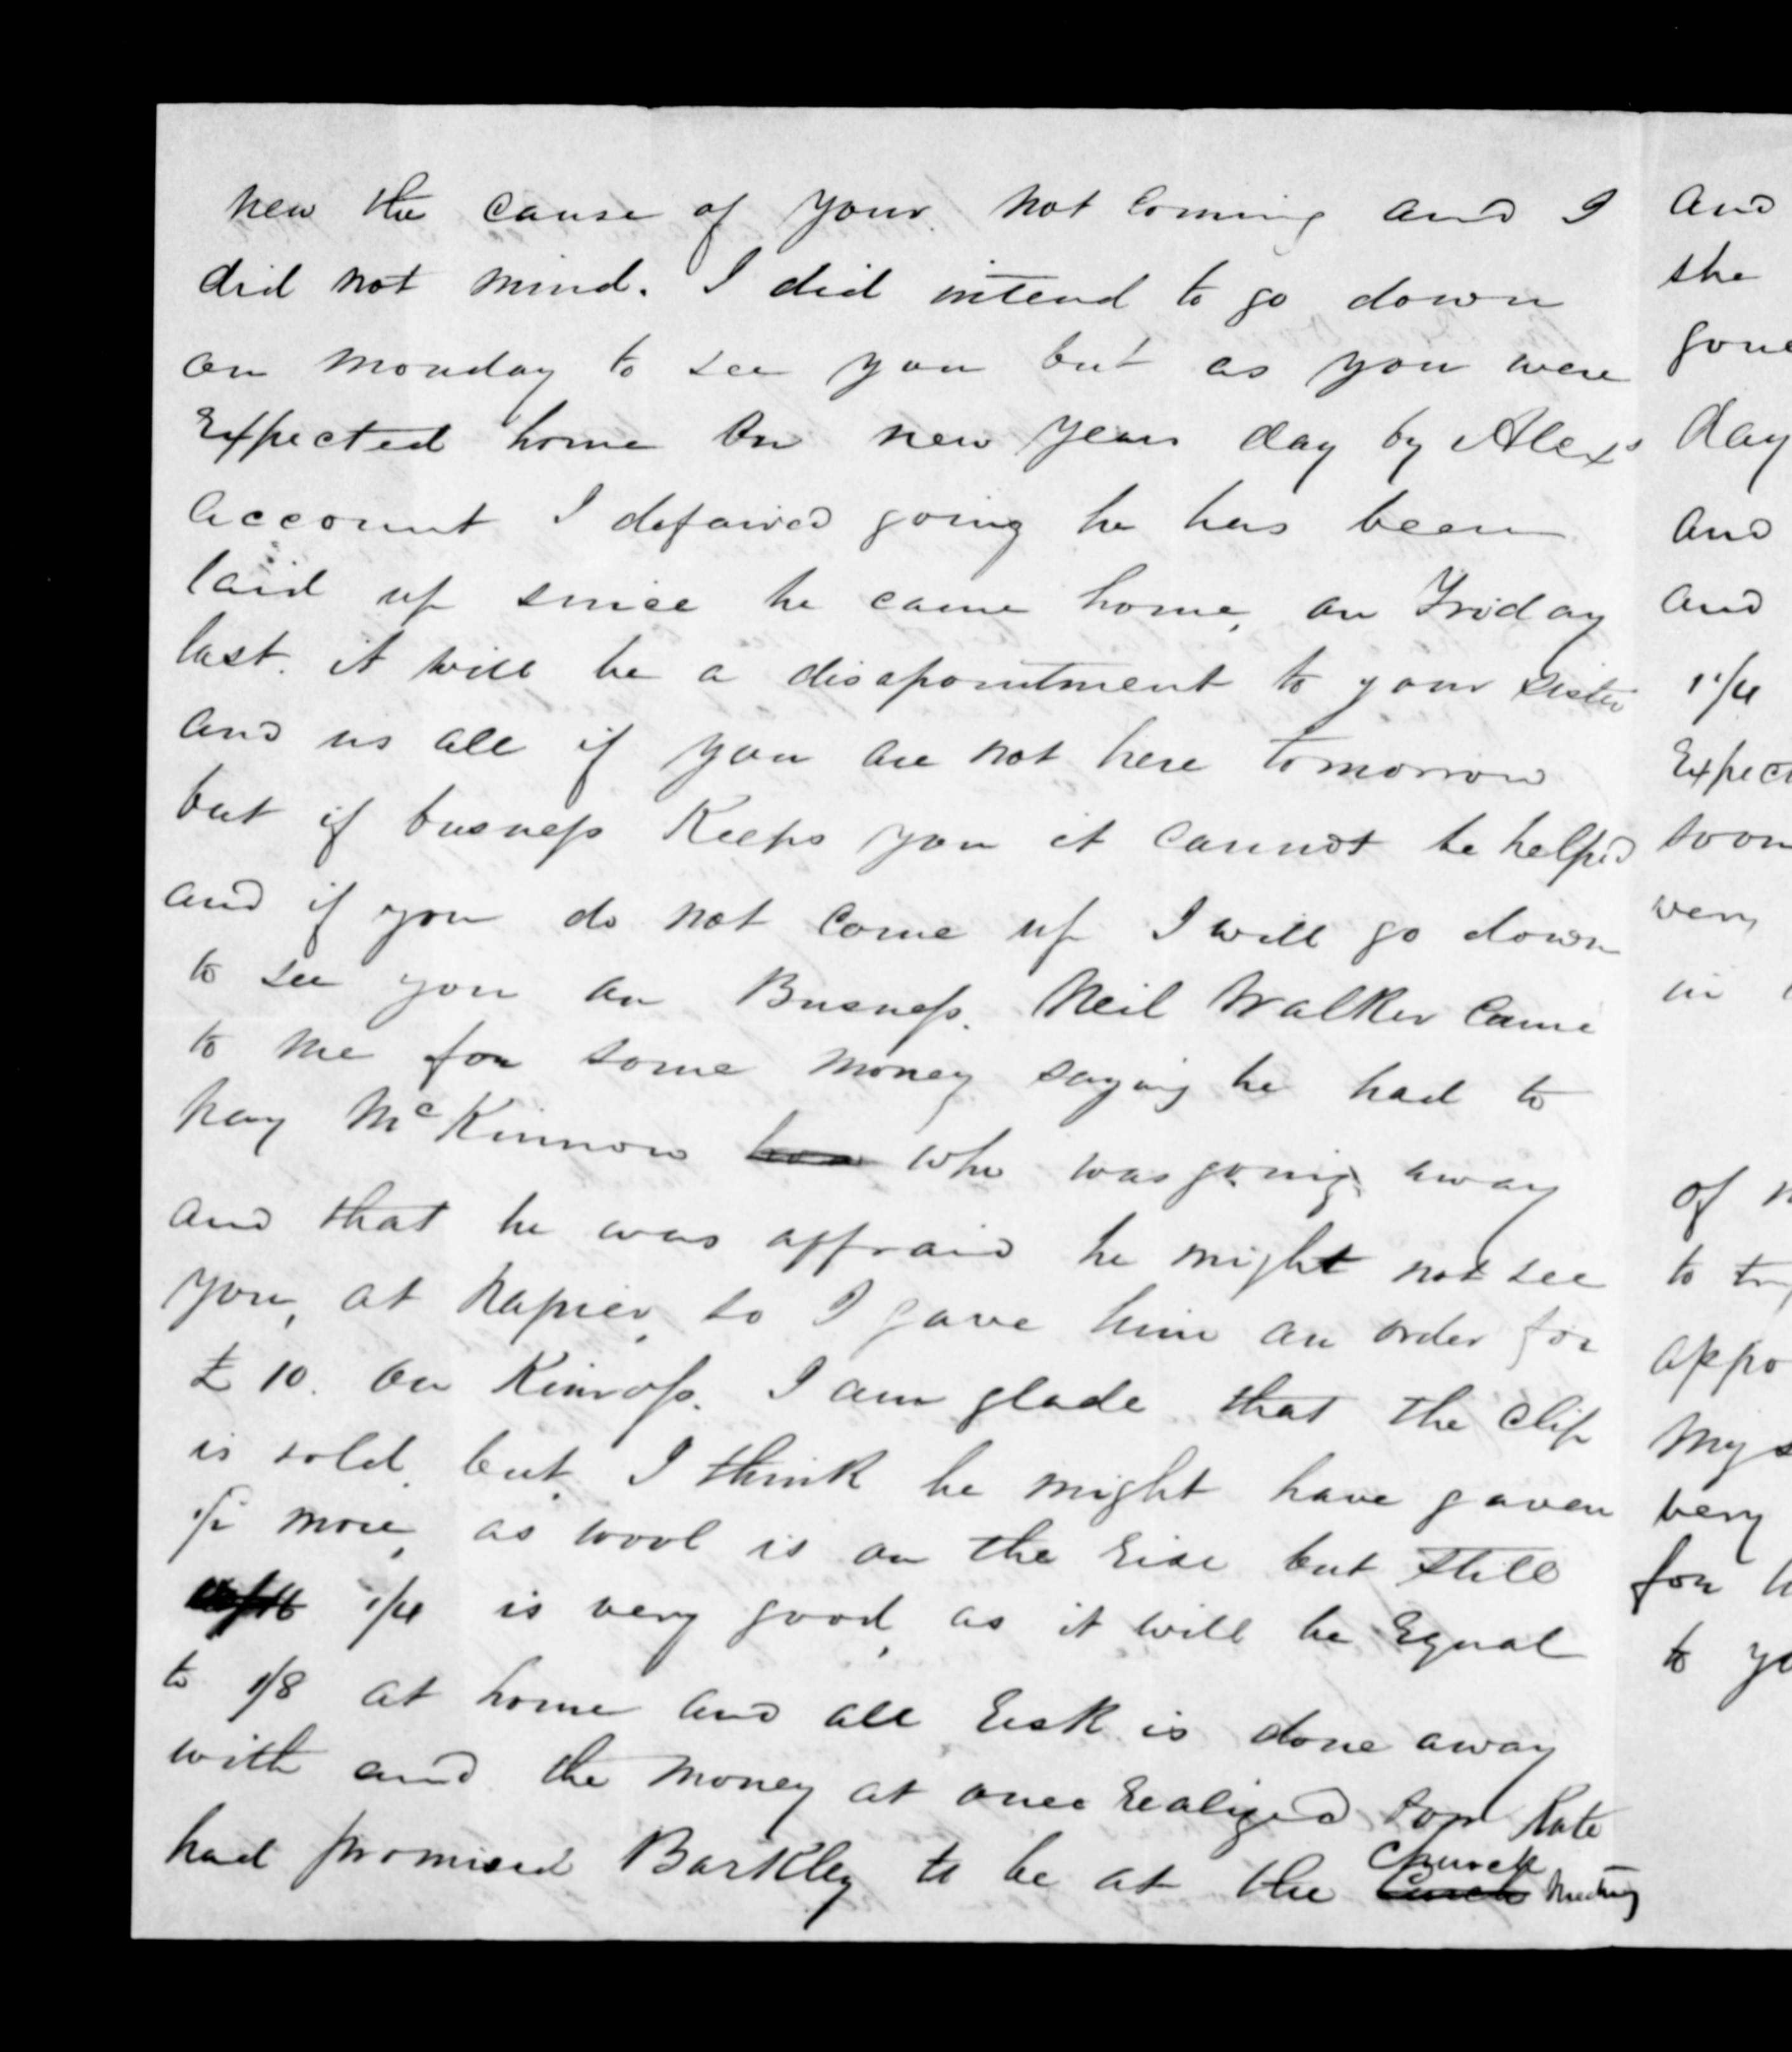 new the cause of your not Coming and I
did not mind. I did intend to go down
on monday to see you but as you were
Expected home on new years day by Alexs
account I defaired going he has been
laid up since he came home, on Friday
last. it will be a disapointment to your sister
and us all if you are not here tomorrow
but if busness Keeps you it cannot be helped
and if you do not Come up I will go down
to see you on Busness. Neil Walker Came
to me for some money saying he had to
pay McKinnon who was going away
and that he was affraid he might not see
you, at Napier, so I gave him an order for
£10. on Kinross. I am glade that the Clip
is sold, but I think he might have gaven
more, as wool is on the rise but still
1/4 is very good, as it will be Equal
to 1/8 at home and all risk is done away
with and the money at once realized
had promised Barkley to be at the Church Meeting
and
she
gone
day
and
and
1/4
Expect
soon
very
in
of
to
appo
My
very
for
to yo